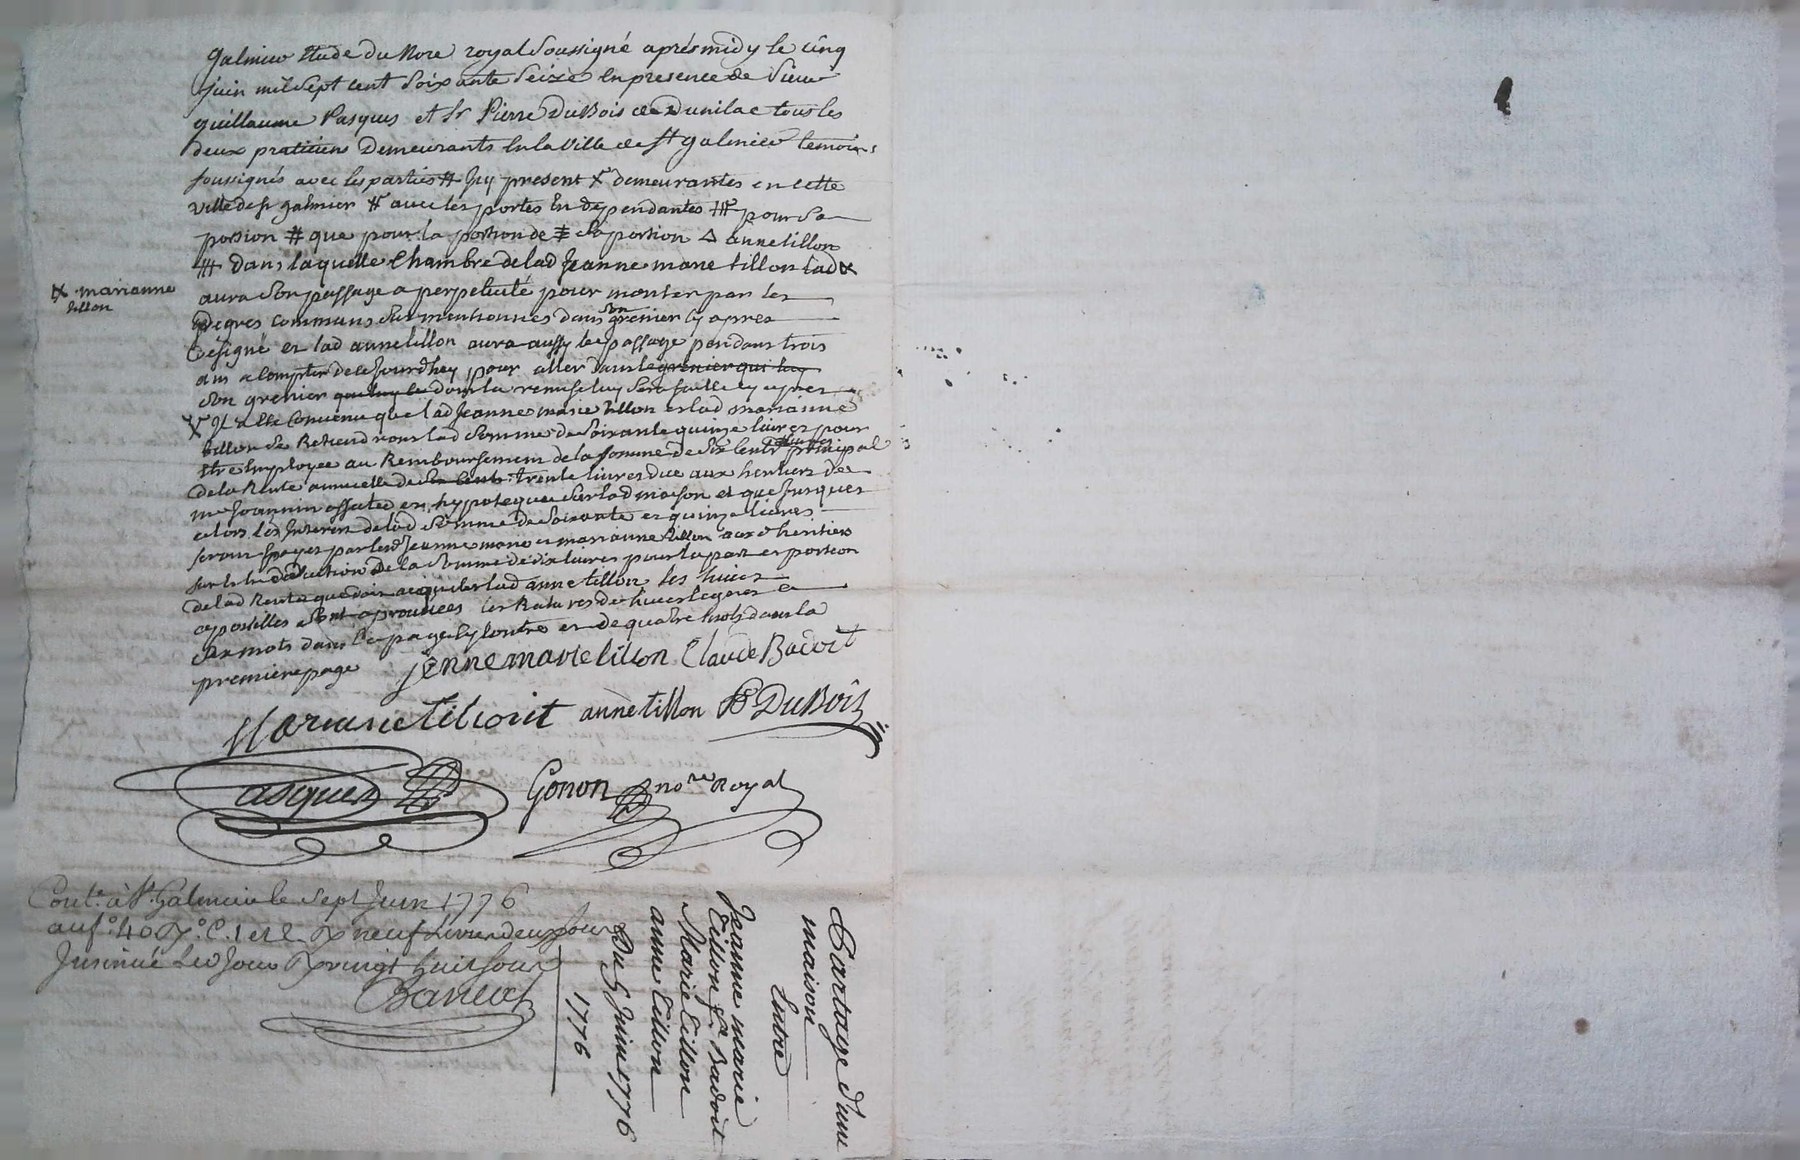 galmier Etude du Nore royal soussigné aprés midy le cinq
juin mil sept cent soixante seize En presence de sieur
guillaume Pasques et sr Pierre DuBois de Dunilac tous les
deux praticiens Demeurants En la ville de st galmier temoins
soussignés avec les parties # Icy present X demeurantes en cette
ville de st galmier # avec les portes En dependantes # pour sa
portion # que pour la portion de sa portion Δ anne tillon
# dans laquelle Chambre de lad Jeanne marie tillon lad X
X marianne
tillon
aura son passage a perpetuité pour monter par les
degres communs sur mentionnés dans son grenier cy apres
designé et lad anne tillon aura aussy le passage pendant trois
ans a Compter de ce Jourdhey pour aller dans le grenier qui luy
son grenier dont la remise luy sera faitte cy apres
X Il a ete Convenu que lad Jeanne marie tillon et lad marianne
tillon se Retiendront lad somme de soixante quinze livres pour
Etre Employee au Remboursement de la somme de six cents livres principal
de la Rente annuelle de trente livres due aux heritiers de
me Joannin affectée et hypotequée sur lad maison et que Jusques
alors les Interets de lad somme de soixante et quinze livres
seront payes par lesd Jeanne marie et marianne tillon auxd heritiers
deduction de la somme de dix livres pour la part et portion
de lad Rente que doit acquitter lad anne tillon les huit
apostilles sont aprouvées les Ratures de huit legeres a
six mots dans la page cy contre et de quatre mots dans la
premiere page jenne marie tillon Claude Badoit
Mariane tiliont anne tillon P DuBois
Pasques Gonon nore Royal
Conté à St. Galmier le sept Juin 1776
au fo. 40 Ro. C. 1 et 2. R neuf Livres deux sous
Insinué Led Jour R vingt huit sous
Partage d'une
maison
Entre
Jeanne marie
Tillon f. Badoit
Marie tillon
anne tillon
Du 5 Juin 1776
1776